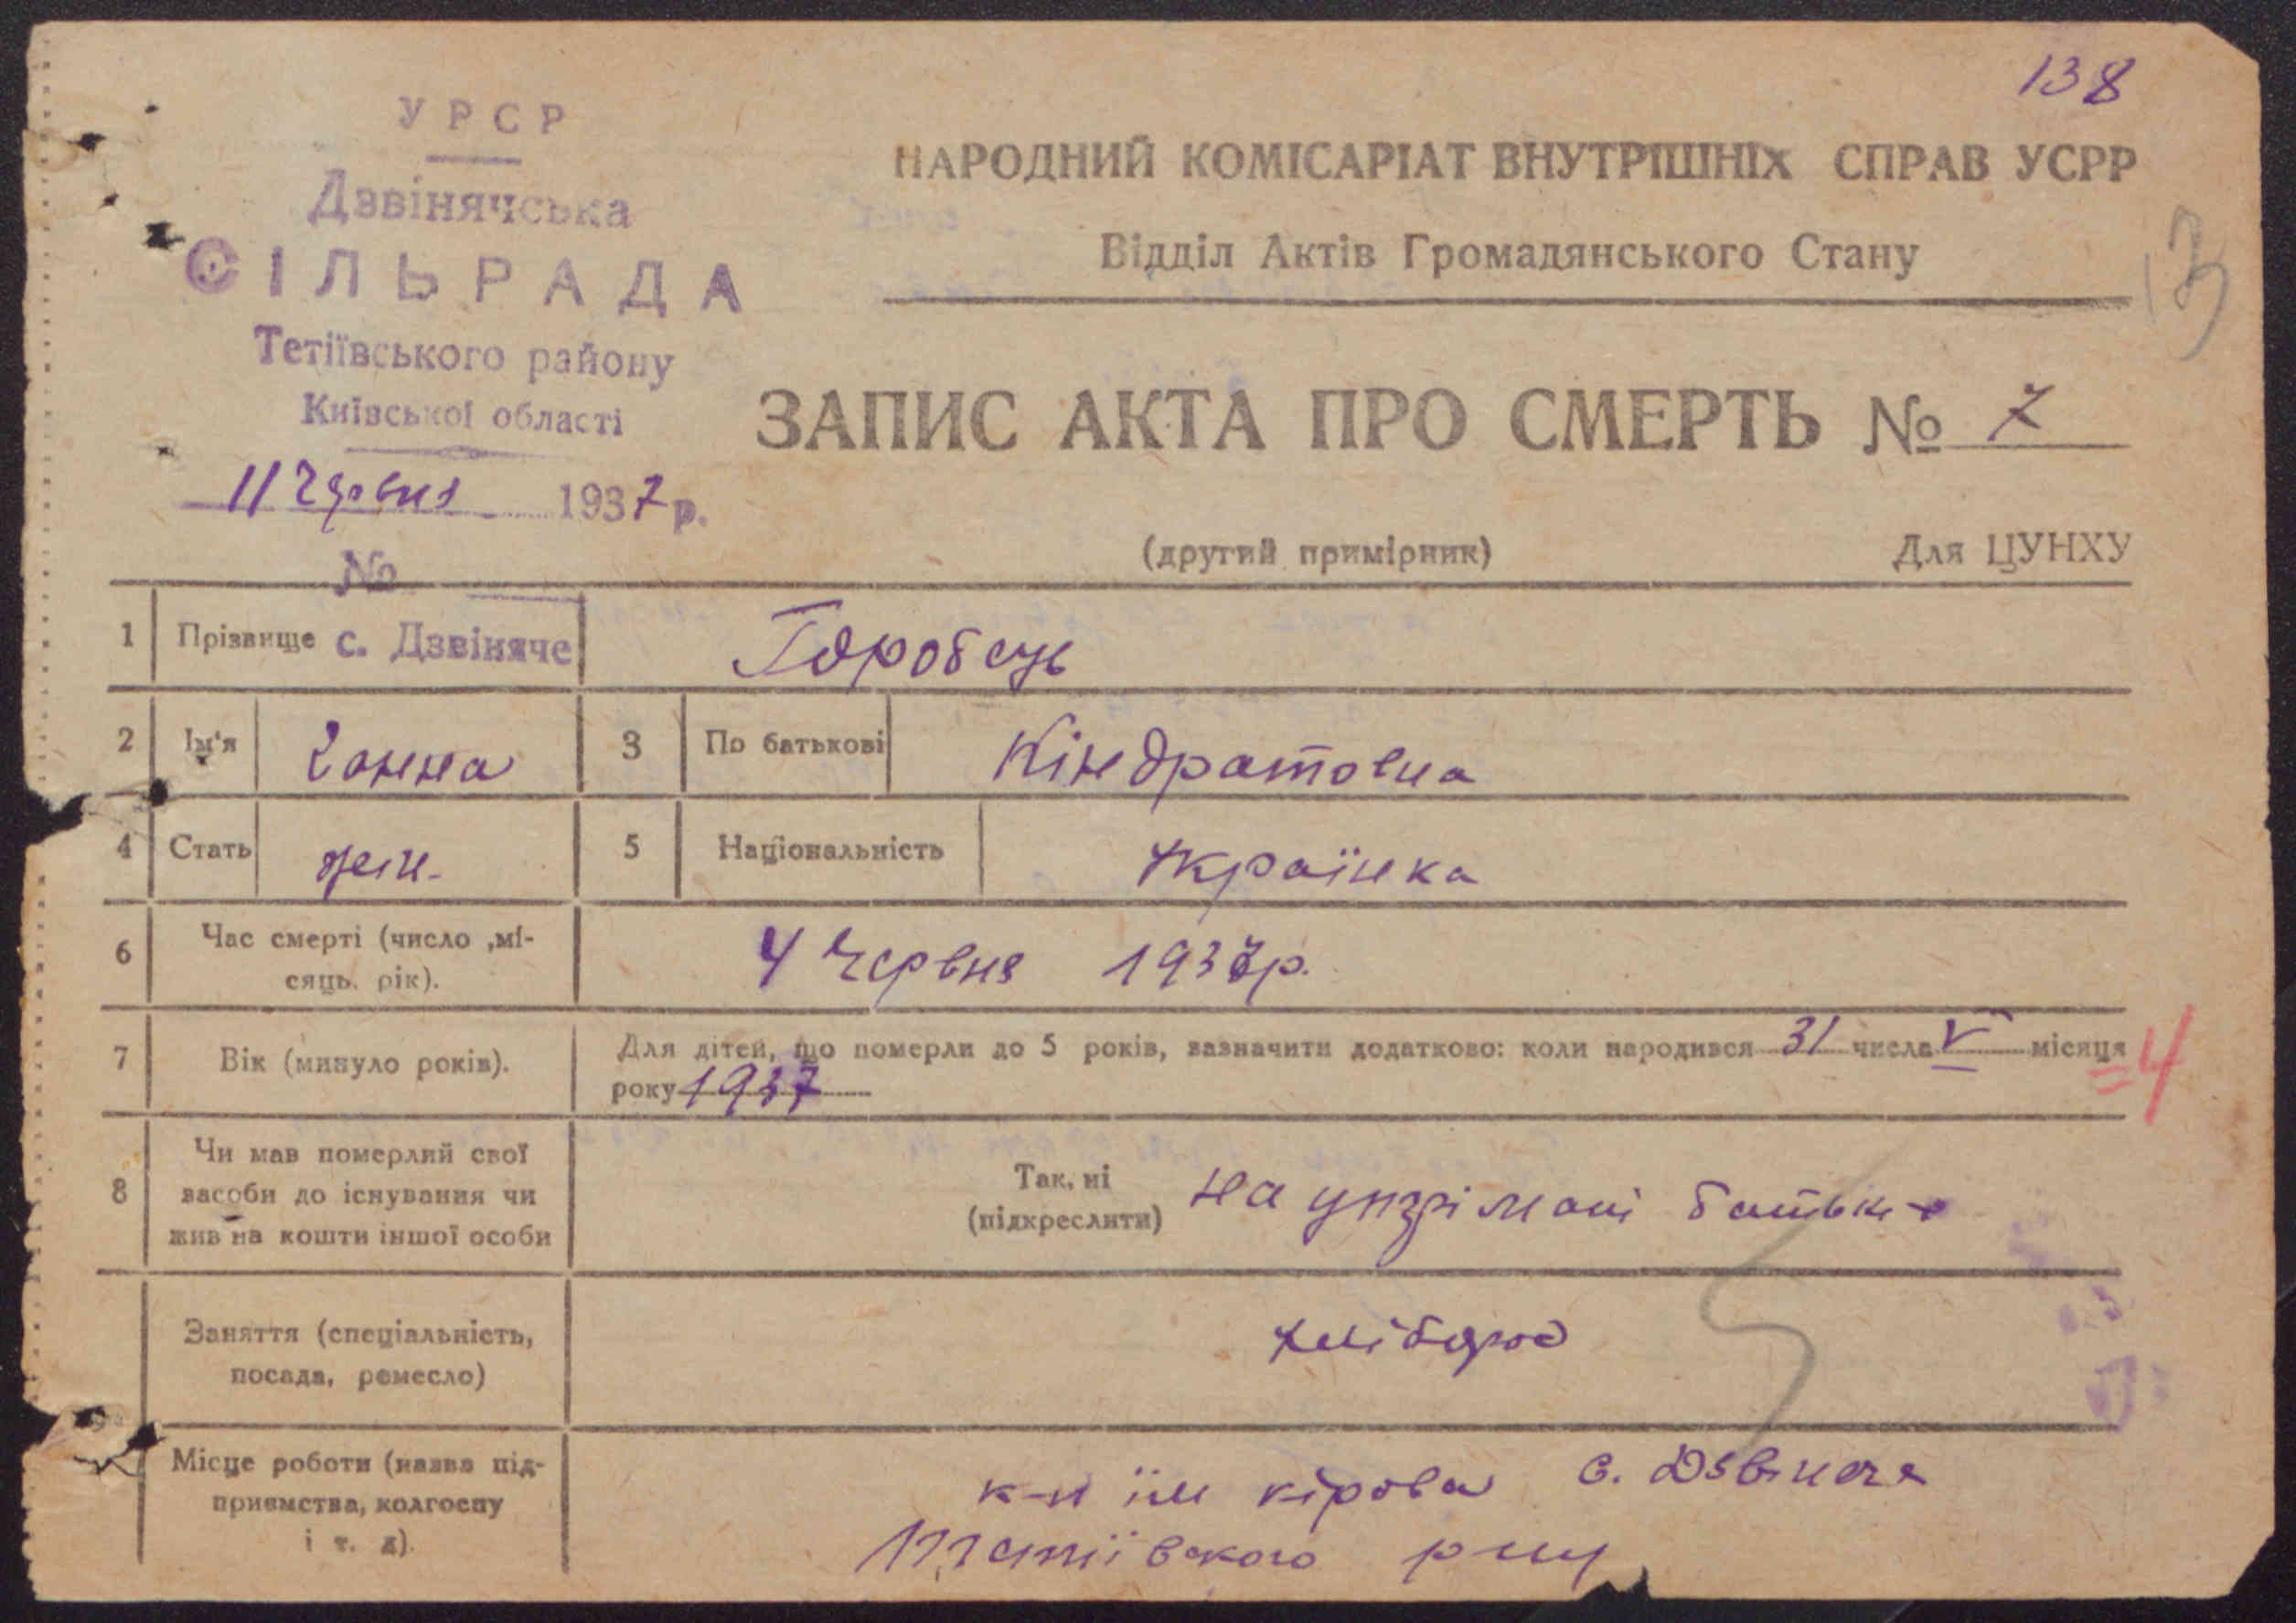 138
У Р С Р
Дзвінячська
СІЛЬРАДА
Тетіївського району
Київської області
11 червня 1937 р.
№
НАРОДНИЙ КОМІСАРІАТ ВНУТРІШНІХ СПРАВ УСРР
Відділ Актів Громадянського Стану
13
ЗАПИС АКТА ПРО СМЕРТЬ № 7
(другий примірник) Для ЦУНХУ
1 Прізвище с. Дзвіняче Горобець
2 Ім'я Ганна 3 По батькові Кіндратовна
4 Стать жін. 5 Національність Українка
6 Час смерті (число ,мі-
сяць. рік). 4 Червня 1937р.
7 Вік (минуло років). Для дітей, що померли до 5 років, зазначити додатково: коли народився 31 числа V місяця
року 1937
=4
8 Чи мав померлий свої
засоби до існування чи
жив на кошти іншої особи
Так, ні
(підкреслити) на утрімані батьк
Заняття (спеціальність,
посада, ремесло) хлібороб
Місце роботи (назва під-
приємства, колгоспу
і т. д).
к-п ім кірова с. Дзвіняче
Тетіївского р-ну